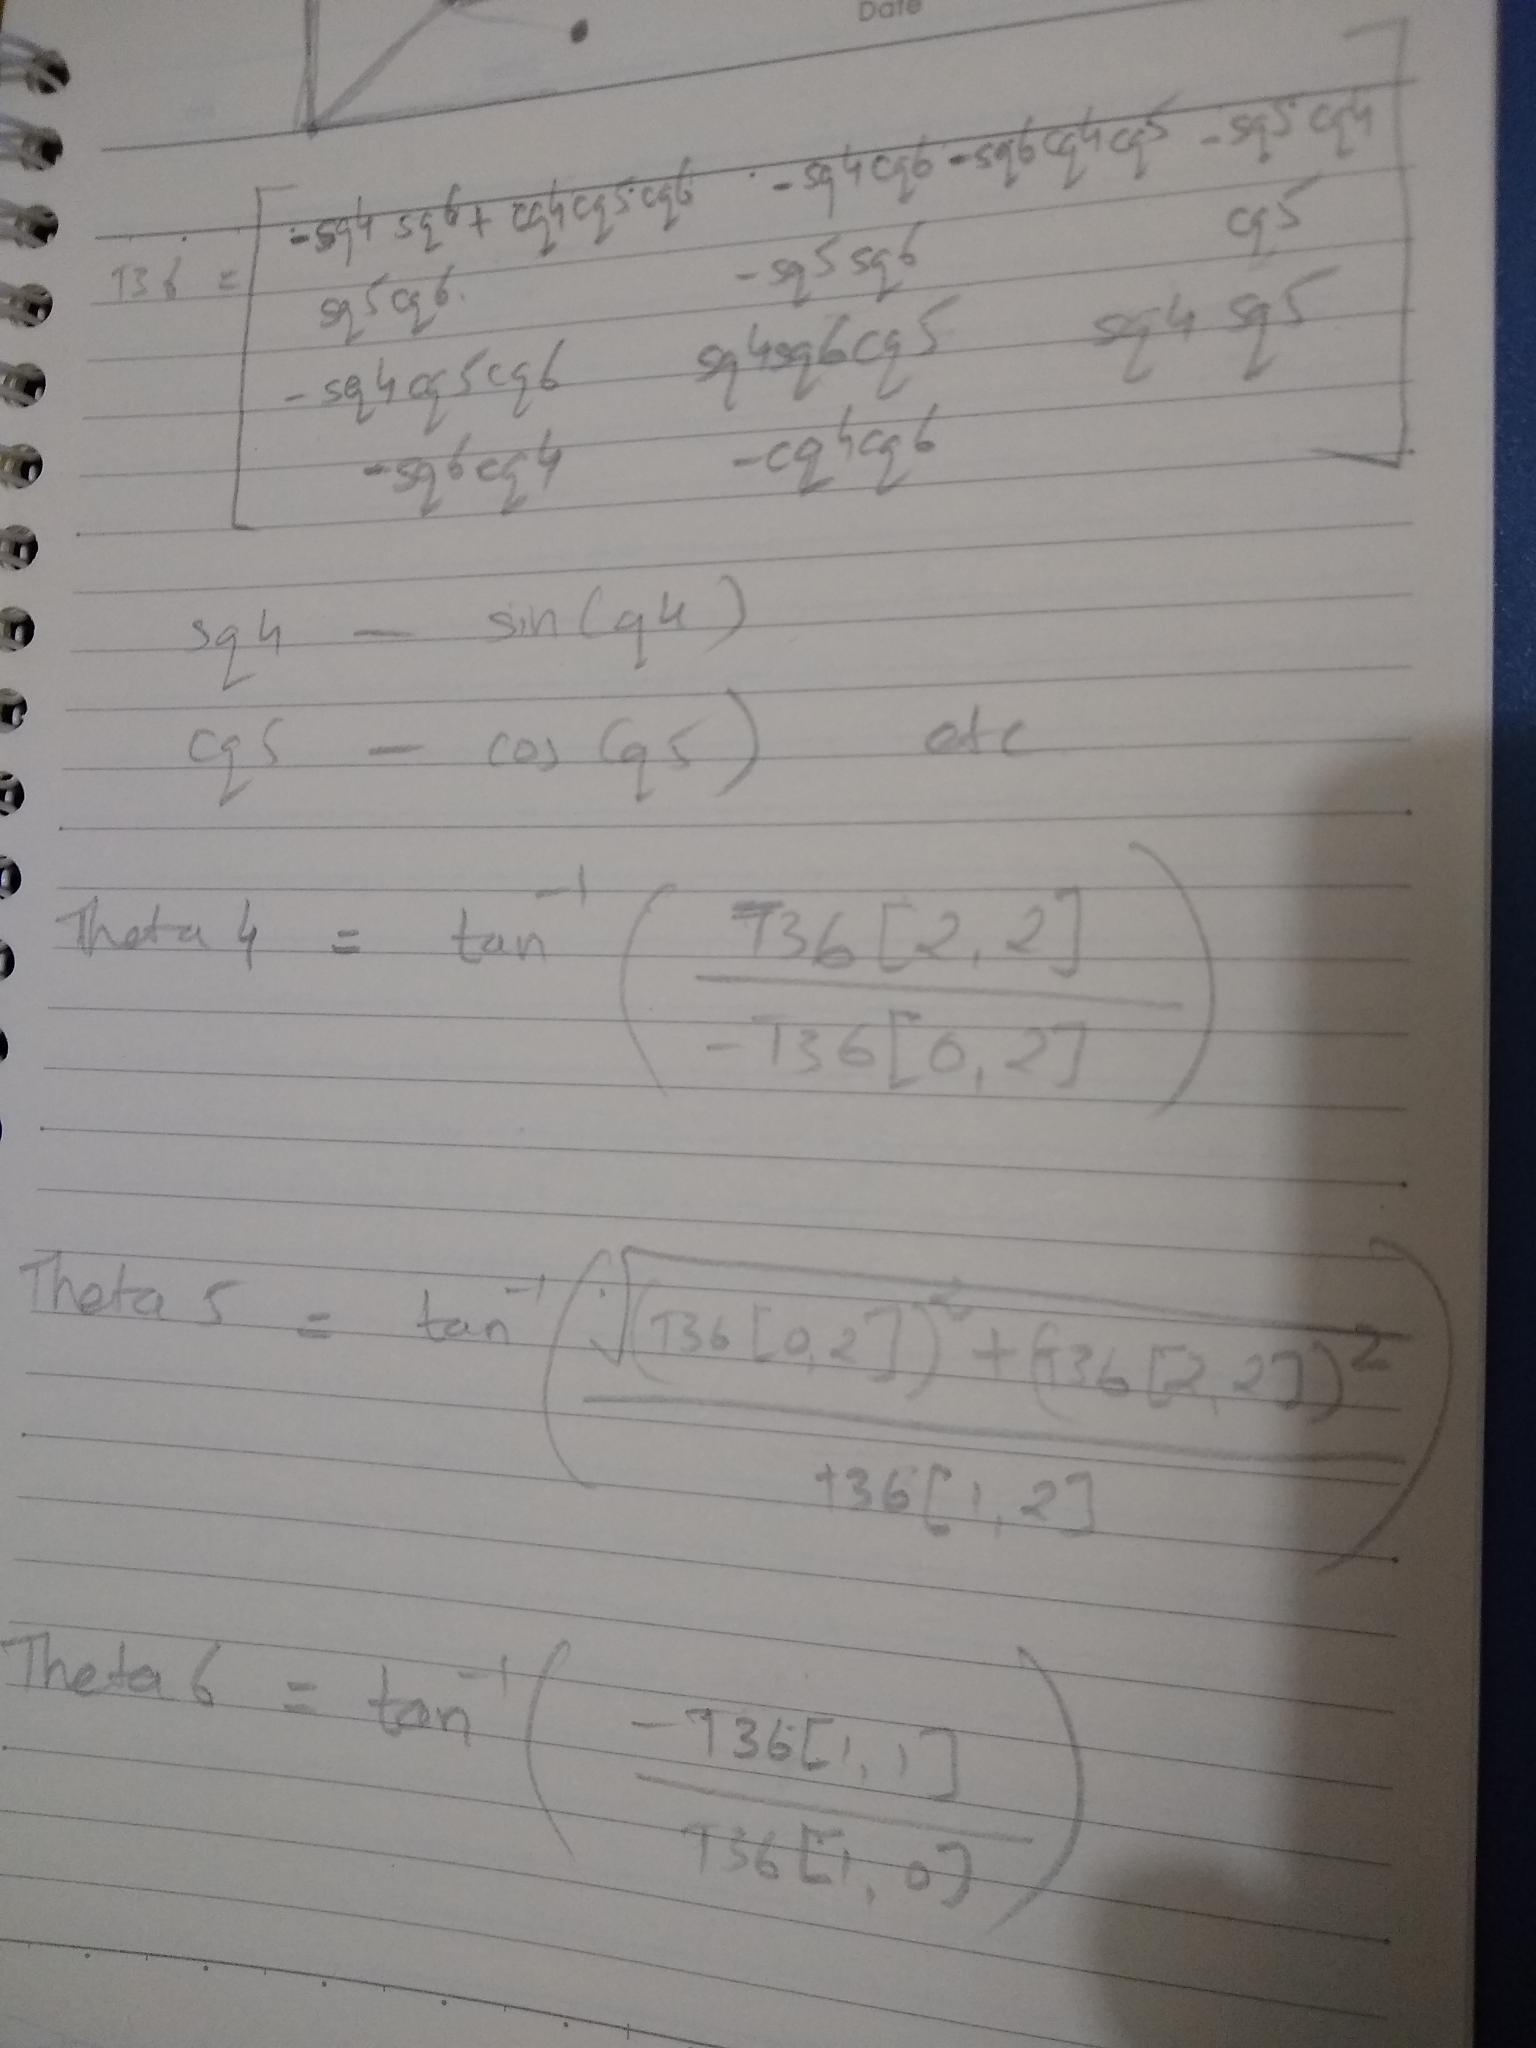 Date
T36 = [ -sq4 sq6 + cq4cq5cq6 -sq4cq6 - sq6cq4cq5 -sq5cq4
sq5cq6 -sq5sq6 cq5
-sq4cq5cq6 sq4sq6cq5 sq4 sq5
-sq6cq4 -cq4cq6 ]
sq4 — sin(q4)
cq5 — cos(q5) etc
Theta 4 = tan⁻¹ ( T36[2,2]
-T36[0,2] )
Theta 5 = tan⁻¹ ( √(T36[0,2])² + (T36[2,2])²
T36[1,2] )
Theta 6 = tan⁻¹ ( -T36[1,1]
T36[1,0] )